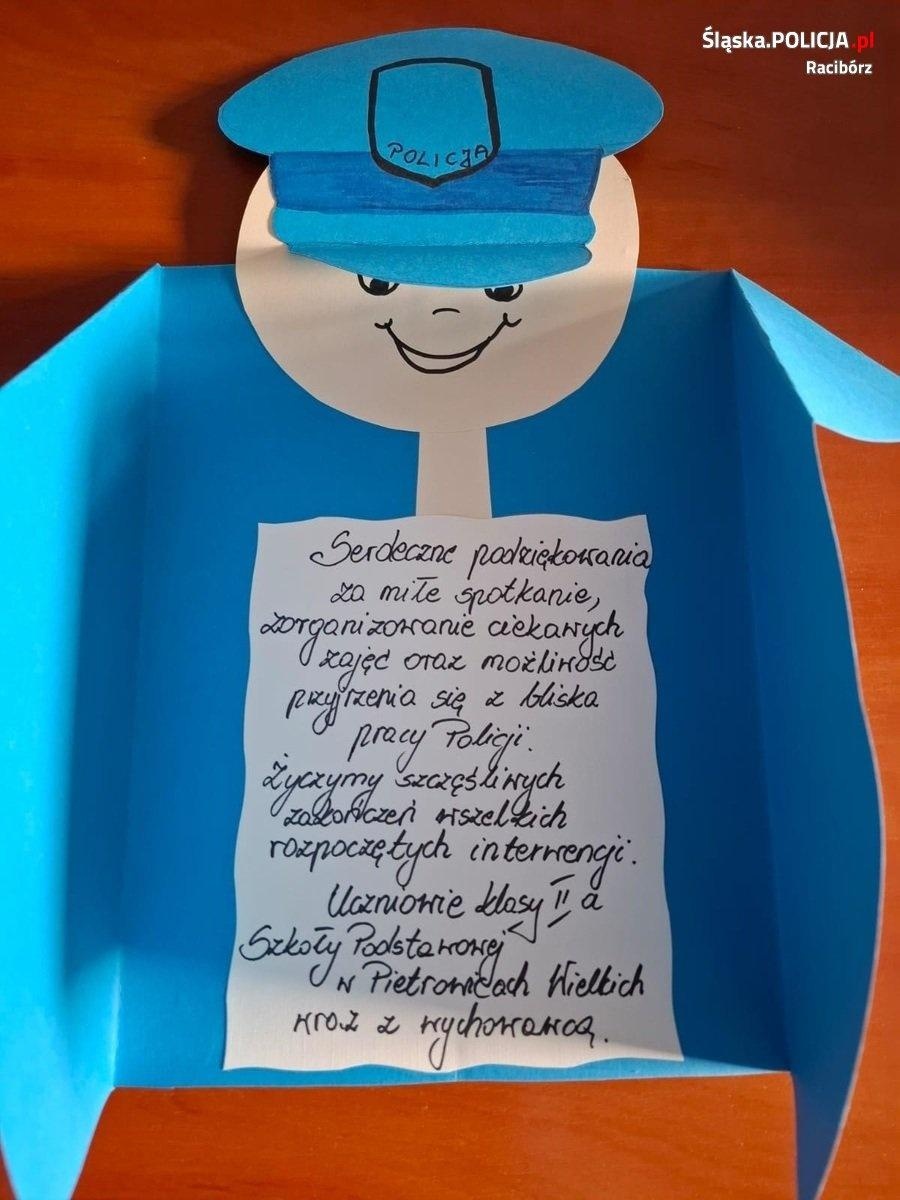 Śląska.POLICJA.pl
Racibórz
POLICJA
Serdeczne podziękowania
za miłe spotkanie,
zorganizowanie ciekawych
zajęć oraz możliwość
przyjrzenia się z bliska
pracy Policji.
Życzymy szczęśliwych
zakończeń wszelkich
rozpoczętych interwencji.
Uczniowie klasy II a
Szkoły Podstawowej
w Pietrowicach Wielkich
wraz z wychowawcą.